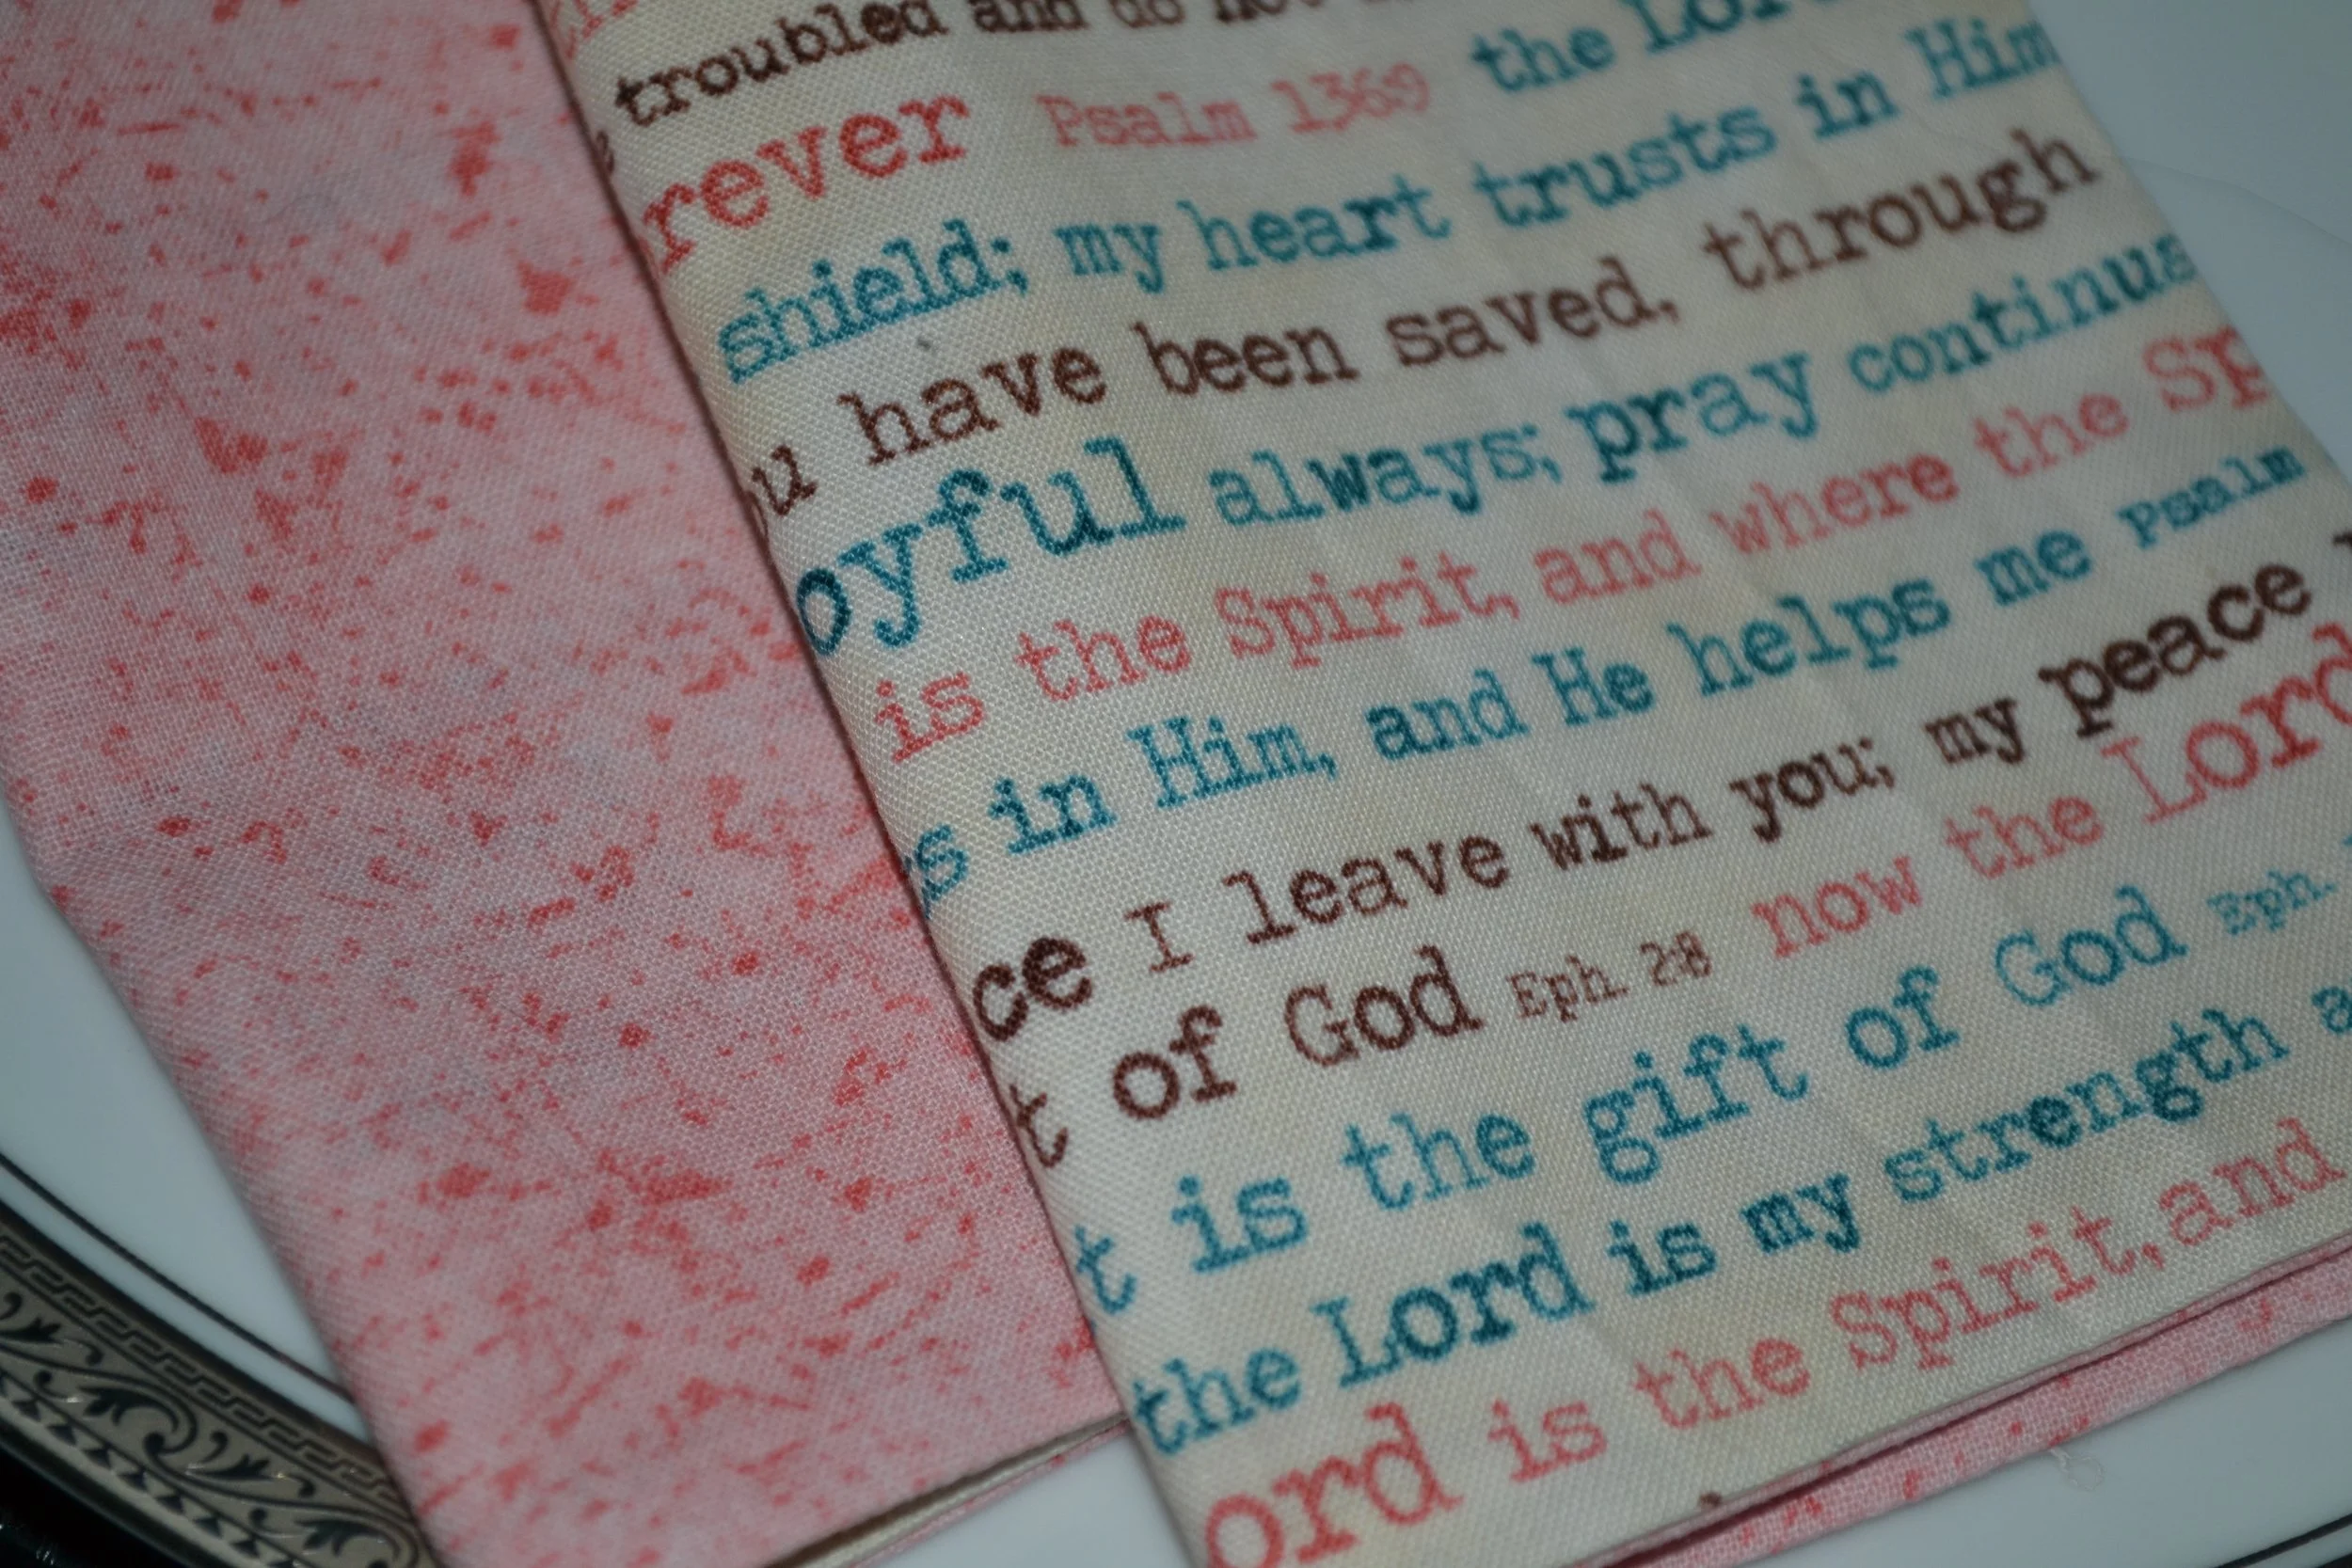 troubled and do not
rever Psalm 1369 the Lor
shield; my heart trusts in Him
u have been saved, through
oyful always; pray continua
is the Spirit, and where the Sp
s in Him, and He helps me Psalm
ce I leave with you; my peace
t of God Eph. 2:8 now the Lord
t is the gift of God Eph.
the Lord is my strength a
ord is the Spirit, and